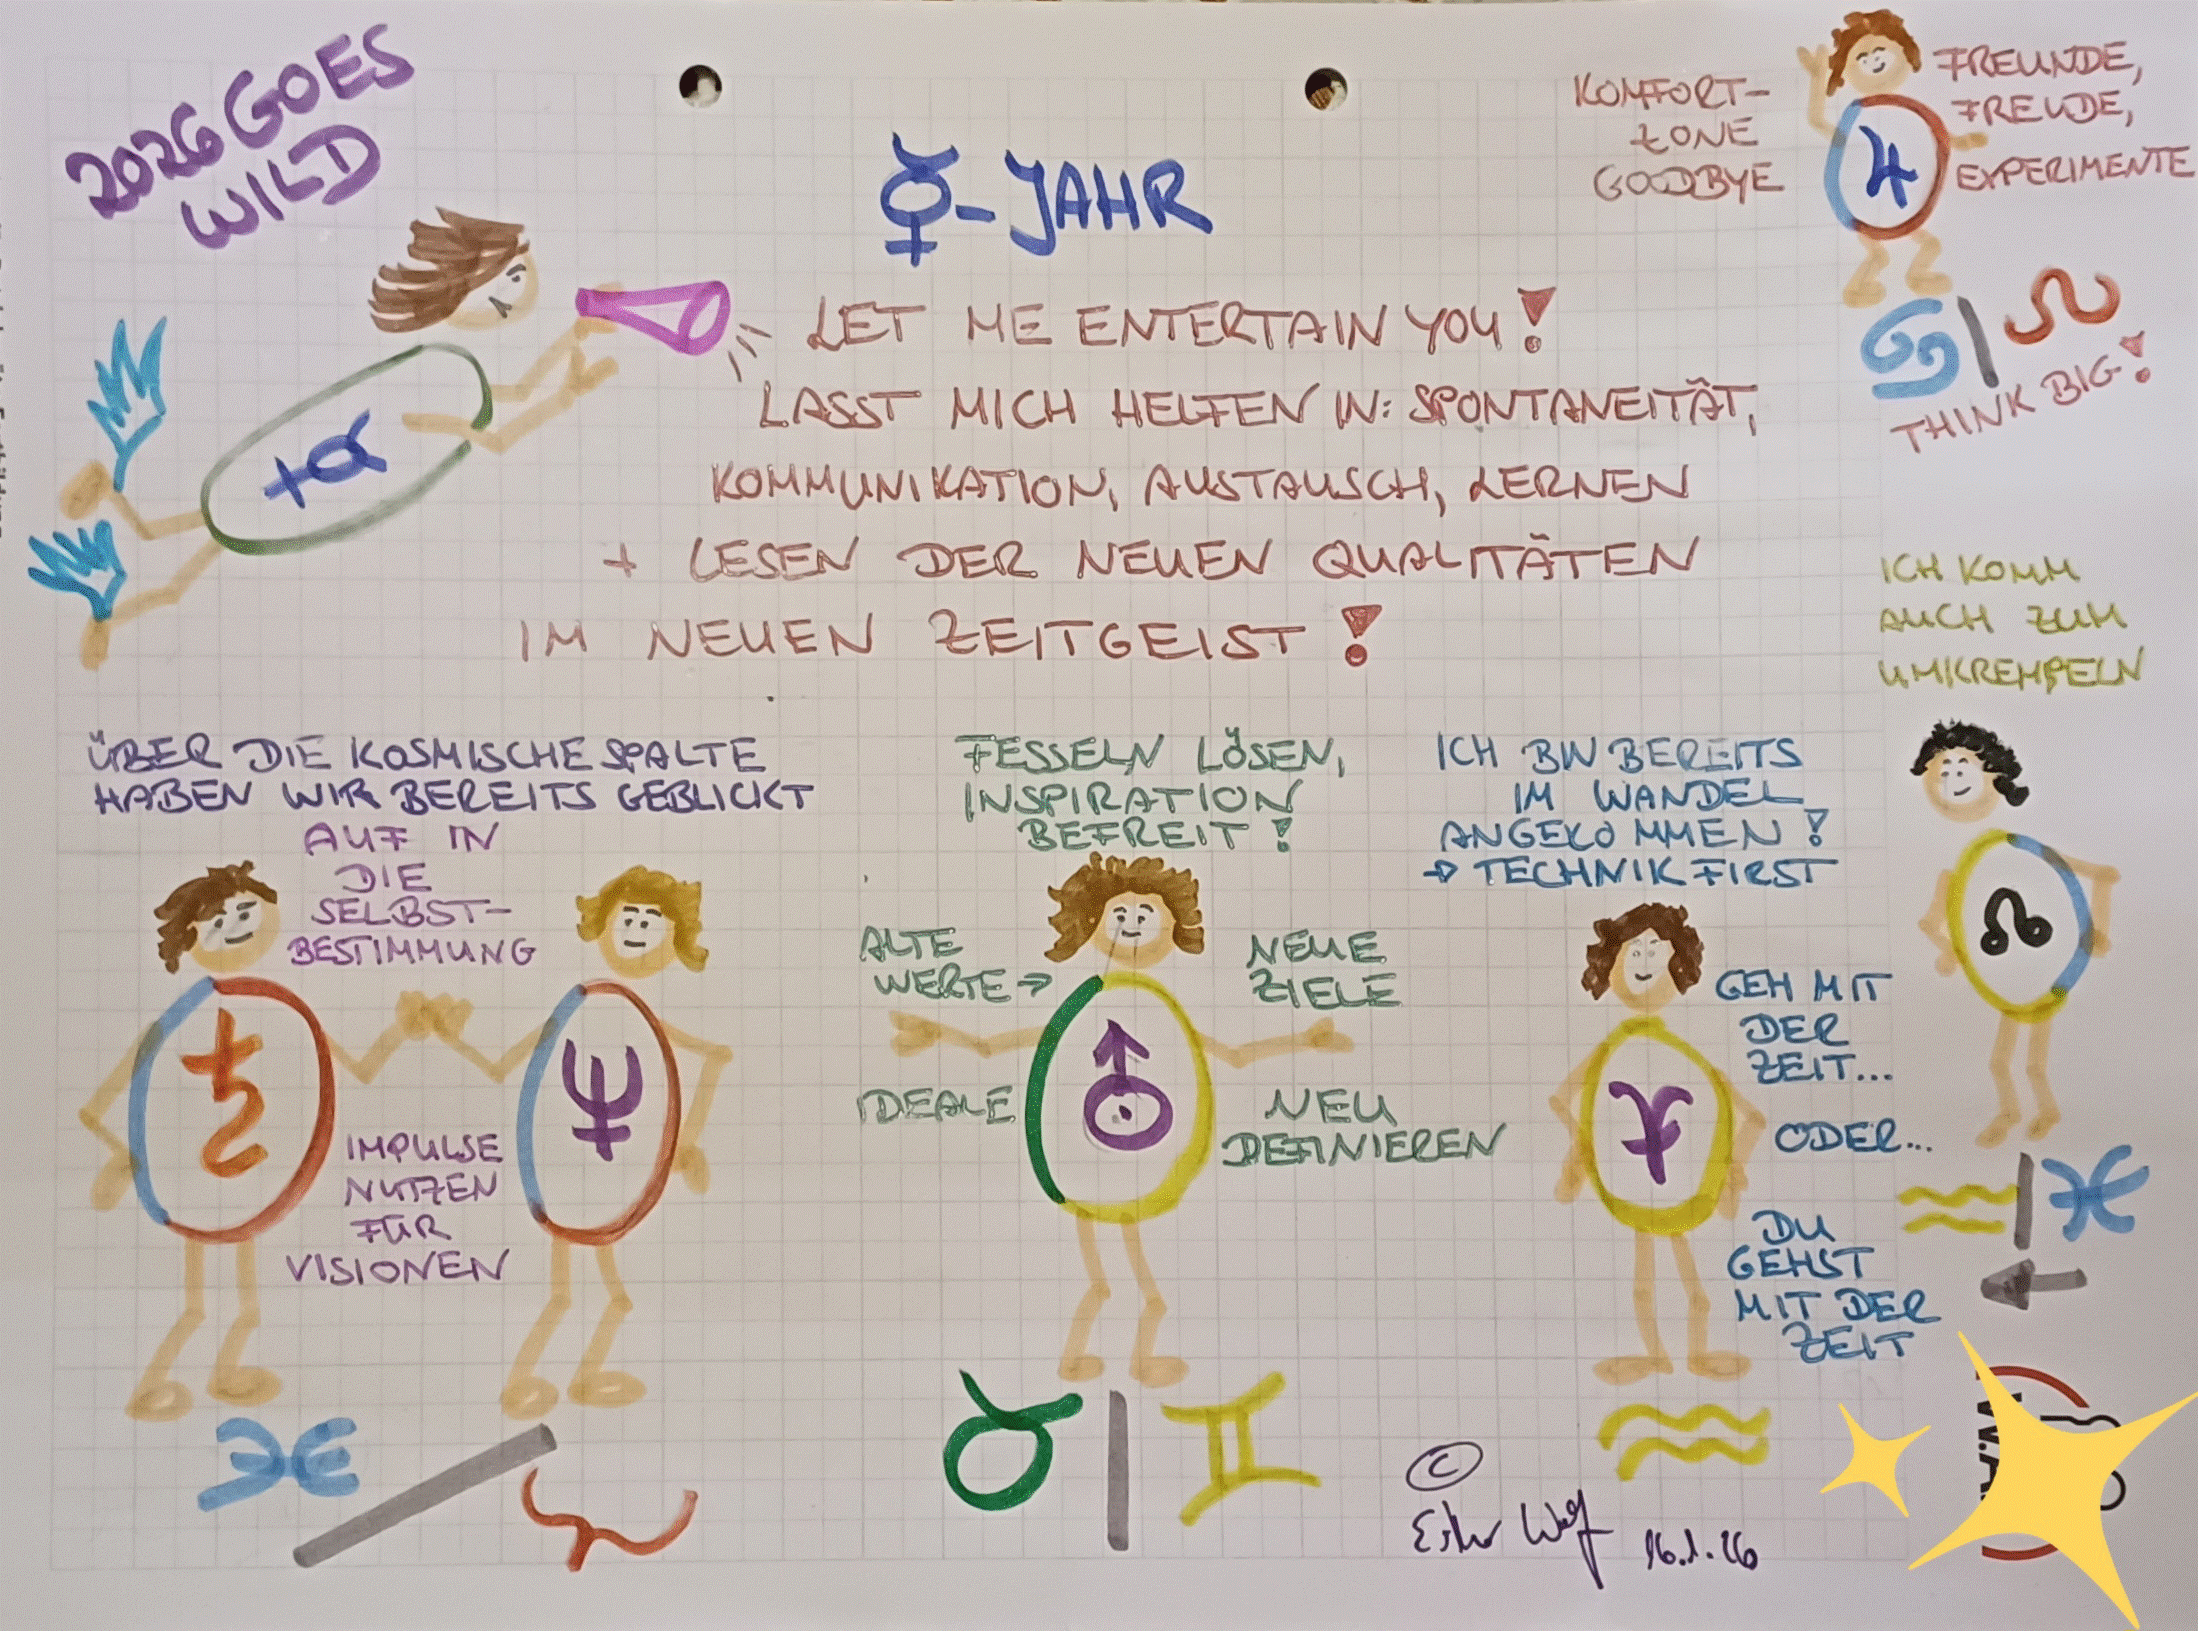 2026 GOES
WILD
☿-JAHR
LET ME ENTERTAIN YOU!
LASST MICH HELFEN IN: SPONTANEITÄT,
KOMMUNIKATION, AUSTAUSCH, LERNEN
+ LESEN DER NEUEN QUALITÄTEN
IM NEUEN ZEITGEIST!
KOMFORT-
ZONE
GOODBYE
FREUNDE,
FREUDE,
EXPERIMENTE
♃
♋ | ♌
THINK BIG!
ÜBER DIE KOSMISCHE SPALTE
HABEN WIR BEREITS GEBLICKT
AUF IN
DIE
SELBST-
BESTIMMUNG
♄
♆
IMPULSE
NUTZEN
FÜR
VISIONEN
♓ / ♈
FESSELN LÖSEN,
INSPIRATION
BEFREIT!
ALTE
WERTE →
IDEALE
⛢
NEUE
ZIELE
NEU
DEFINIEREN
♉ | ♊
ICH BIN BEREITS
IM WANDEL
ANGEKOMMEN!
→ TECHNIK FIRST
GEH MIT
DER
ZEIT...
ODER...
DU
GEHST
MIT DER
ZEIT
♒
ICH KOMM
AUCH ZUM
UMKREMPELN
☊
♒ | ♓
←
©
Esther Wolf 16.1.26